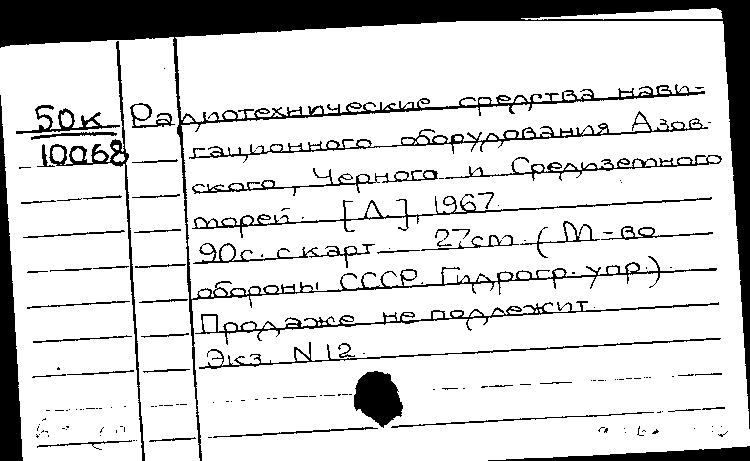 50к
10068
Радиотехнические средства нави-
гационного оборудования Азов-
ского, Черного и Средиземного
морей. [Л.], 1967.
90с. с карт. 27см. (М-во
обороны СССР. Гидрогр. упр.)
Продаже не подлежит.
Экз. N 12.